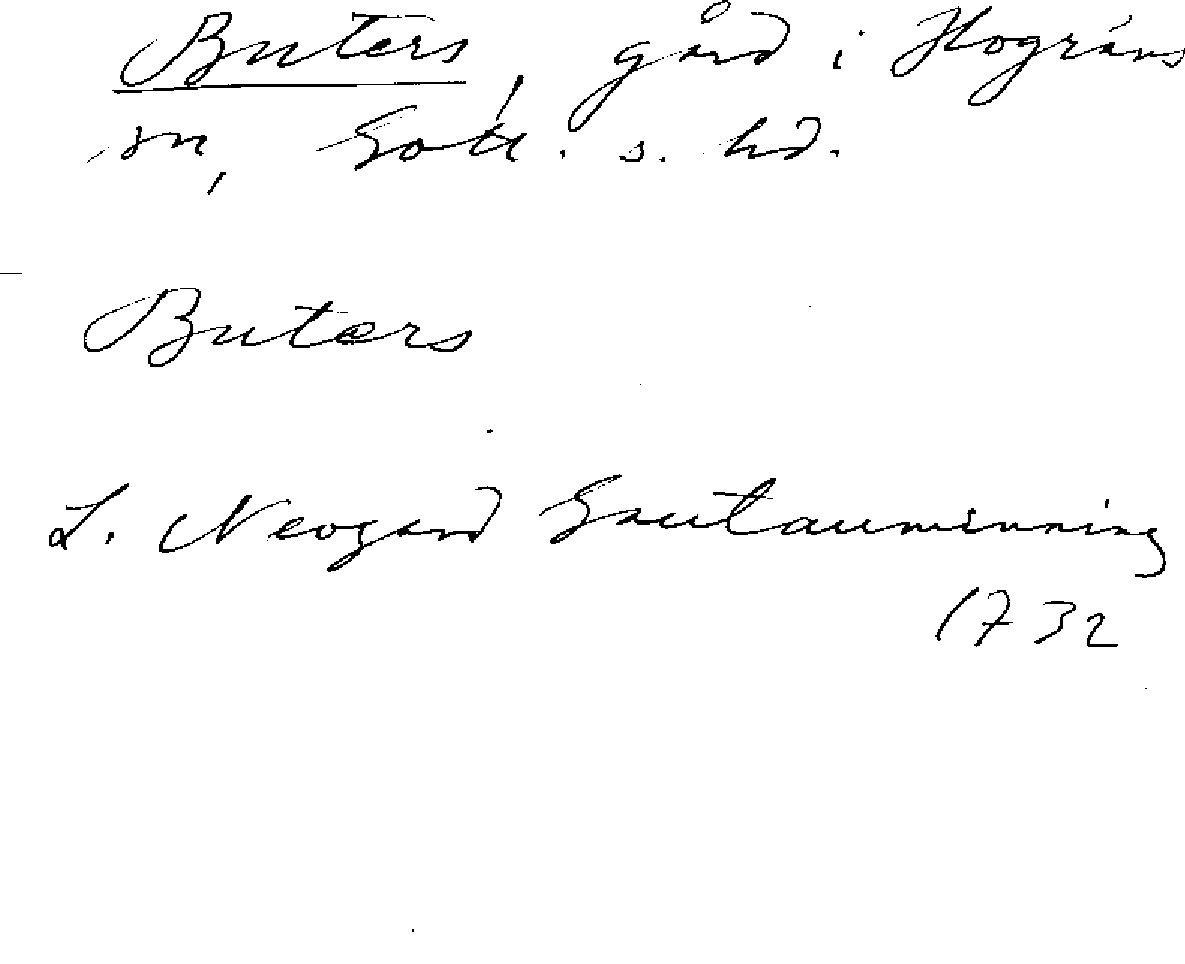 Buters, gård i Hogräns
sn, Gotl. s. hd.
Butærs
L. Neogard Gautauminning
1732